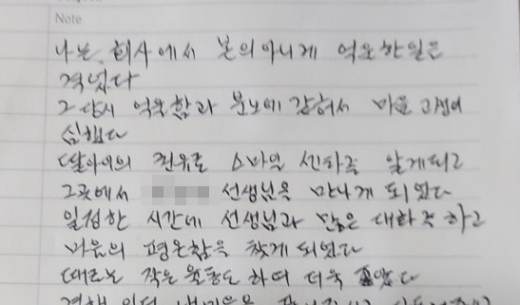 Note
나는 회사에서 본의아니게 억울한일은
겪었다
그 당시 억울함과 분노에 갇혀서 마음 고생이
심했다
딸아이의 권유로 스마일 센터를 알게되고
그곳에서 선생님을 만나게 되었다
일정한 시간에 선생님과 많은 대화를 하고
마음의 평온함을 찾게 되었다
때로는 작은 운동도 하며 더욱 좋았다